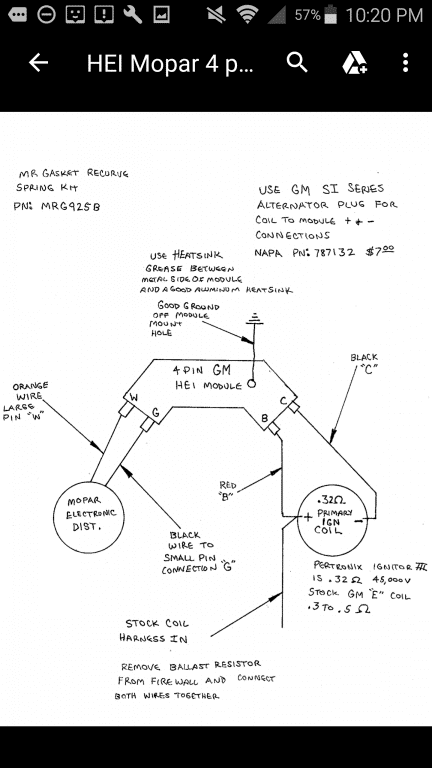 57% 10:20 PM
HEI Mopar 4 p...
MR GASKET RECURVE
SPRING KIT
PN: MRG925B
USE GM SI SERIES
ALTERNATOR PLUG FOR
COIL TO MODULE + & -
CONNECTIONS
NAPA PN: 787132 $7.00
USE HEATSINK
GREASE BETWEEN
METAL SIDE OF MODULE
AND A GOOD ALUMINUM HEATSINK
GOOD GROUND
OFF MODULE
MOUNT
HOLE
4 PIN GM
HEI MODULE
W
G
B
C
BLACK
"C"
ORANGE
WIRE
LARGE
PIN "W"
MOPAR
ELECTRONIC
DIST.
RED
"B"
BLACK
WIRE TO
SMALL PIN
CONNECTION "G"
.32Ω
+ PRIMARY -
IGN
COIL
PERTRONIX IGNITOR III
IS .32Ω 45,000V
STOCK GM "E" COIL
.3 TO .5 Ω
STOCK COIL
HARNESS IN
REMOVE BALLAST RESISTOR
FROM FIREWALL AND CONNECT
BOTH WIRES TOGETHER